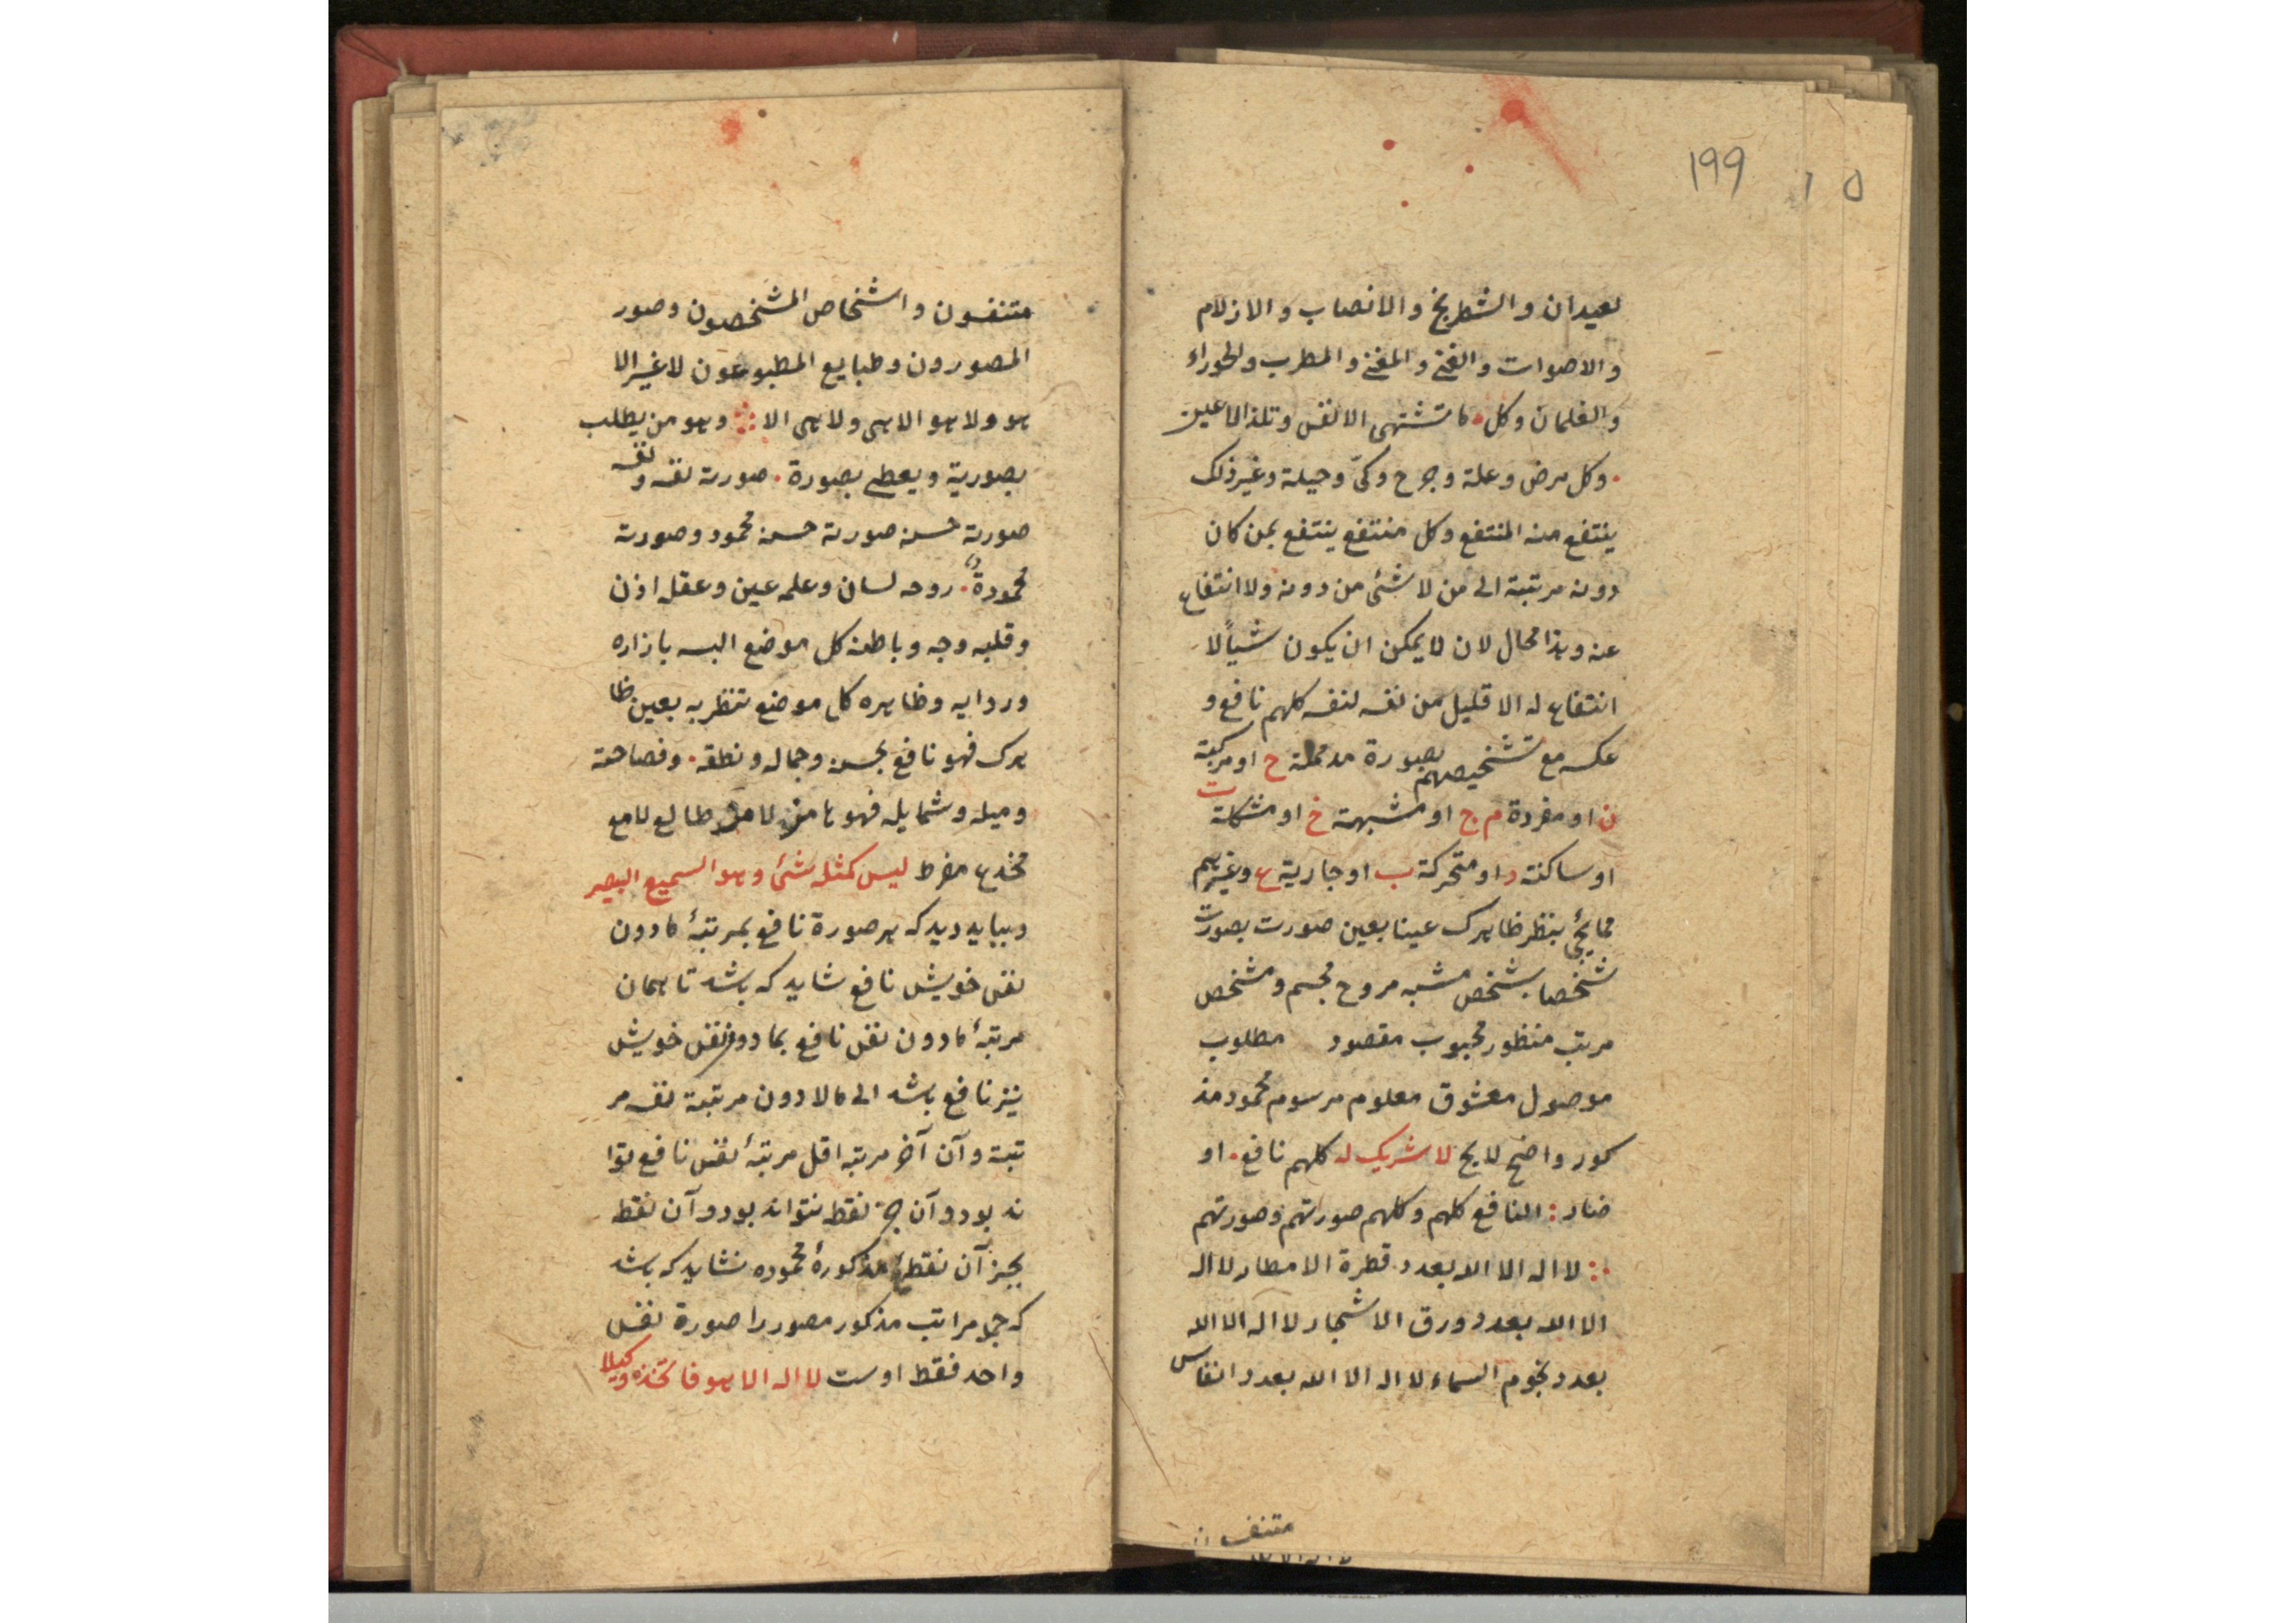 ۱۹۹
لعیدان و الشطرنج و الانصاب و الازلام
و الاصوات و الغنی و المغنی و المطرب و الحوراء
و الغلمان و کل ما تشتهی الانفس و تلذ الاعین
وکل مرض و علة و جرح و کیّ و حیلة و غیر ذلک
ینتفع منه المنتفع وکل منتفع ینتفع بمن کان
دونه مرتبته الی من لا شئ من دونه ولا انتفاع
عنه و هذا محال لان لا یمکن ان یکون شیأً لا
انتفاع له الا قلیل من نفسه لنفسه کلهم نافع و
عکسه مع تشخیصهم بصورة ح او مرکبة
ن او مفردة م ج او مشبهة خ او مشکلة ت
او ساکنة د او متحرکة ب او جاریة ع و غیرهم
مما یجئ بنظر ظاهرک عینا بعین صورت بصورت
شخصا بشخص مشبه مروح مجسم و مشخص
مرتب منظور محبوب مقصود مطلوب
موصول معشوق معلوم مرسوم محمود مذ
کور واضح لایح لا شریک له کلهم نافع او
ضار النافع کلهم و کلهم صورتهم و صورتهم
لا اله الا الله بعدد قطرة الامطار لا اله
الا الله بعدد ورق الاشجار لا اله الا الله
بعدد نجوم السماء لا اله الا الله بعدد انفاس
متنفسون و اشخاص المشخصون و صور
المصورون و طبایع المطبوعون لا غیر الا
هو ولا هو الا هی ولا هی الا وهو من یطلب
بصوریة و یعطی بصورة صورته نفسه و نفسه
صورته حسنه صورته حسنه محمود و صورته
محمودة روحه لسان و علمه عین و عقله اذن
و قلبه وجه و باطنه کل موضع البسه بازاره
و ردایه و ظاهره کل موضع تنظر به بعین ظا
هرک فهو نافع بحسنه و جماله و نطقه و فصاحته
و میله و شمایله فهو لامر طالع لامع
مخدع مفرط لیس کمثله شئ وهو السمیع البصیر
و بباید دید که هر صورة نافع بمرتبهٔ مادون
نفس خویش نافع شاید که باشد تا همان
مرتبهٔ مادون نفس نافع بمادون نفس خویش
نیز نافع باشد الی ما لا دون مرتبة نفسه مر
تبة و آن آخر مرتبه اقل مرتبهٔ نفس نافع توا
ند بود و آن جز نقطه نتواند بود و آن نقطه
بجز آن نقطهٔ مذکورهٔ محموده نشاید که باشد
که جمیع مراتب مذکور مصور را صورة نفس
واحد فقط اوست لا اله الا هو فاتخذه وکیلا